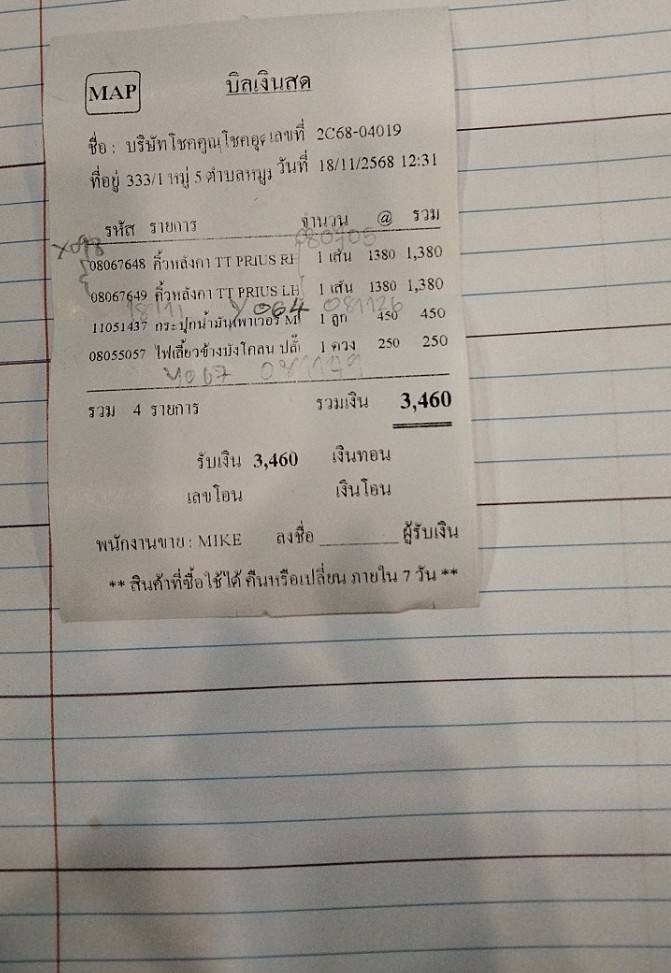 MAP บิลเงินสด
ชื่อ : บริษัทโชคคูณโชค เลขที่ 2C68-04019
ที่อยู่ 333/1 หมู่ 5 ตำบล วันที่ 18/11/2568 12:31
รหัส รายการ จำนวน @ รวม
X098 080705
08067648 คิ้วหลังคา TT PRIUS RH 1 เส้น 1380 1,380
08067649 คิ้วหลังคา TT PRIUS LH 1 เส้น 1380 1,380
Y064 081126
11051437 กระปุกน้ำมันเพาเวอร์ MI 1 ลูก 450 450
08055057 ไฟเลี้ยวข้างบังโคลน 1 ดวง 250 250
4067
รวม 4 รายการ รวมเงิน 3,460
รับเงิน 3,460 เงินทอน
เลขโอน เงินโอน
พนักงานขาย : MIKE ลงชื่อ ผู้รับเงิน
** สินค้าที่ซื้อไร้ได้ คืนหรือเปลี่ยน ภายใน 7 วัน **